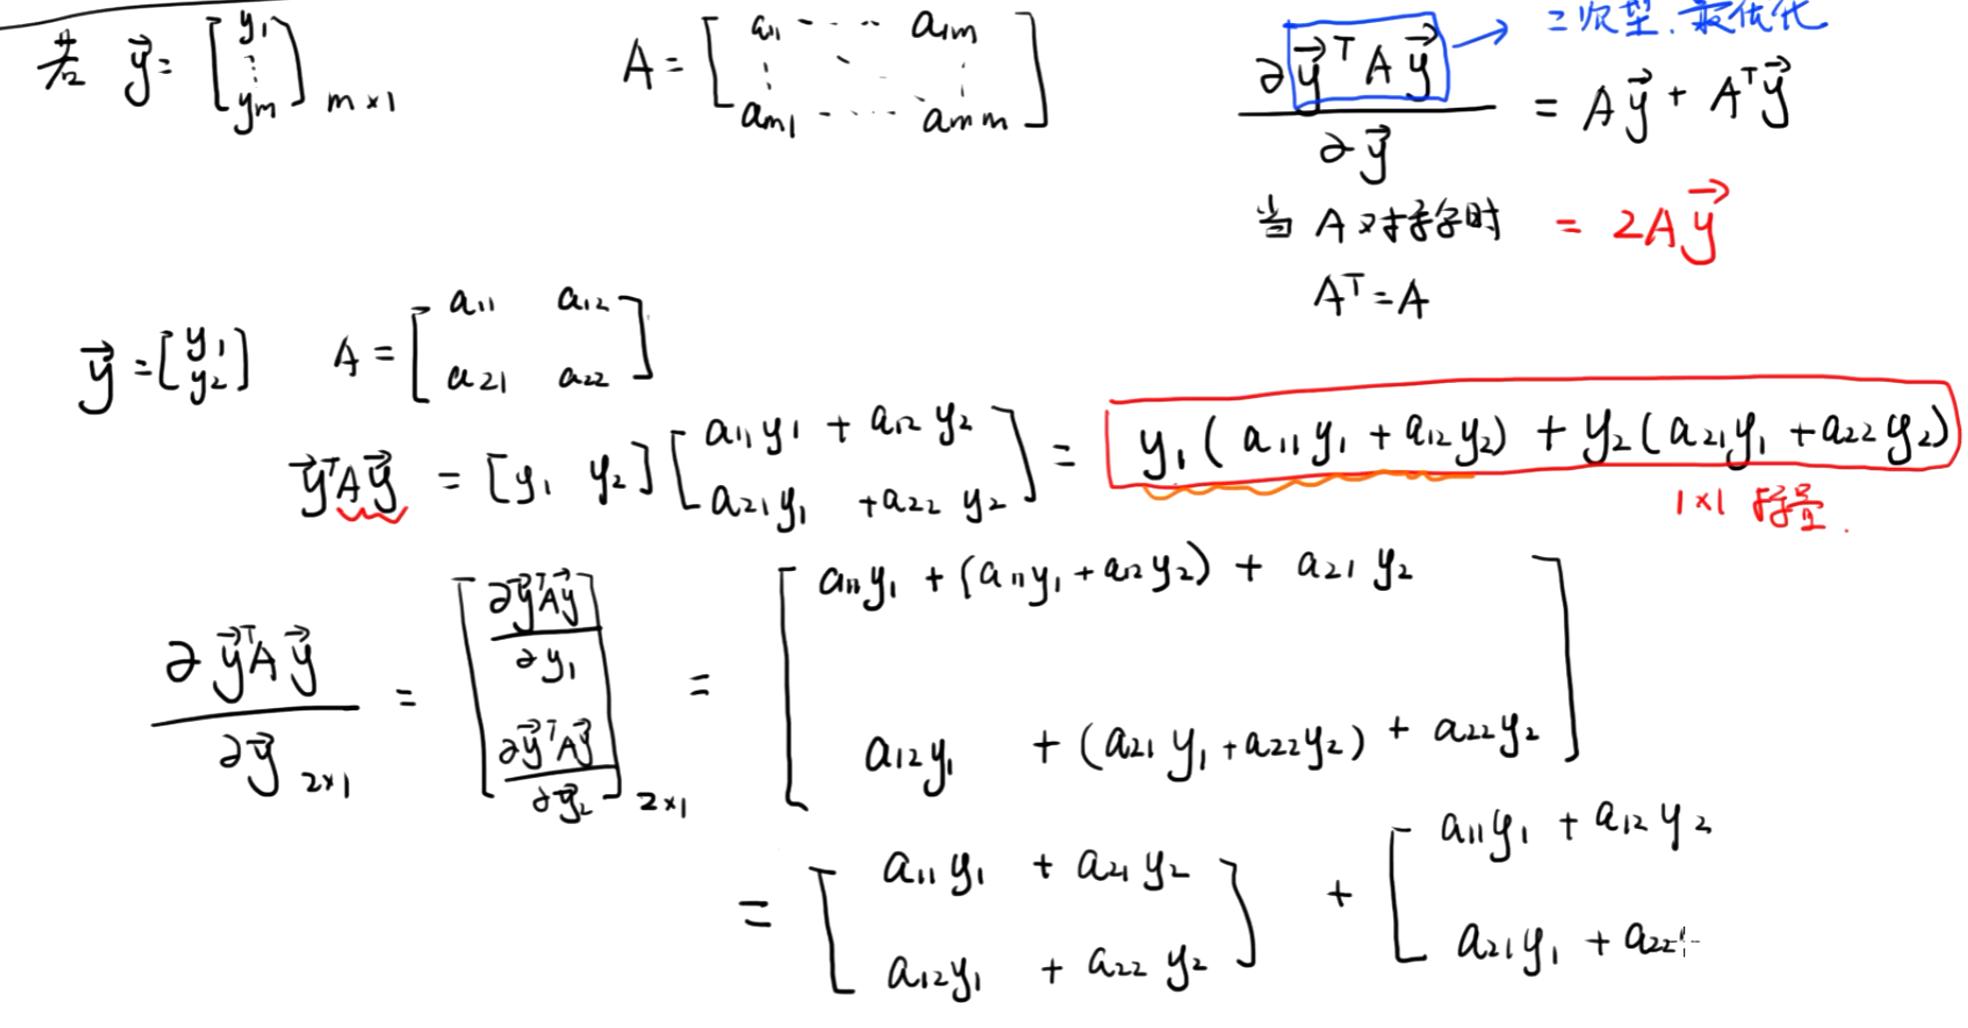 若 y⃗ = [y₁ ⋮ yₘ] m×1
A = [a₁₁ ⋯ a₁ₘ ⋮ ⋱ ⋮ aₘ₁ ⋯ aₘₘ]
∂y⃗ᵀAy⃗ / ∂y⃗ = Ay⃗ + Aᵀy⃗
→ 二次型. 最优化
当 A 对称时 = 2Ay⃗
Aᵀ = A
y⃗ = [y₁ y₂] A = [a₁₁ a₁₂ a₂₁ a₂₂]
y⃗ᵀAy⃗ = [y₁ y₂] [a₁₁y₁ + a₁₂y₂ a₂₁y₁ + a₂₂y₂] = y₁(a₁₁y₁ + a₁₂y₂) + y₂(a₂₁y₁ + a₂₂y₂)
1×1 标量.
∂y⃗ᵀAy⃗ / ∂y⃗ 2×1 = [∂y⃗ᵀAy⃗ / ∂y₁ ∂y⃗ᵀAy⃗ / ∂y⃗₂] 2×1 = [a₁₁y₁ + (a₁₁y₁ + a₁₂y₂) + a₂₁y₂ a₁₂y₁ + (a₂₁y₁ + a₂₂y₂) + a₂₂y₂]
= [a₁₁y₁ + a₂₁y₂ a₁₂y₁ + a₂₂y₂] + [a₁₁y₁ + a₁₂y₂ a₂₁y₁ + a₂₂